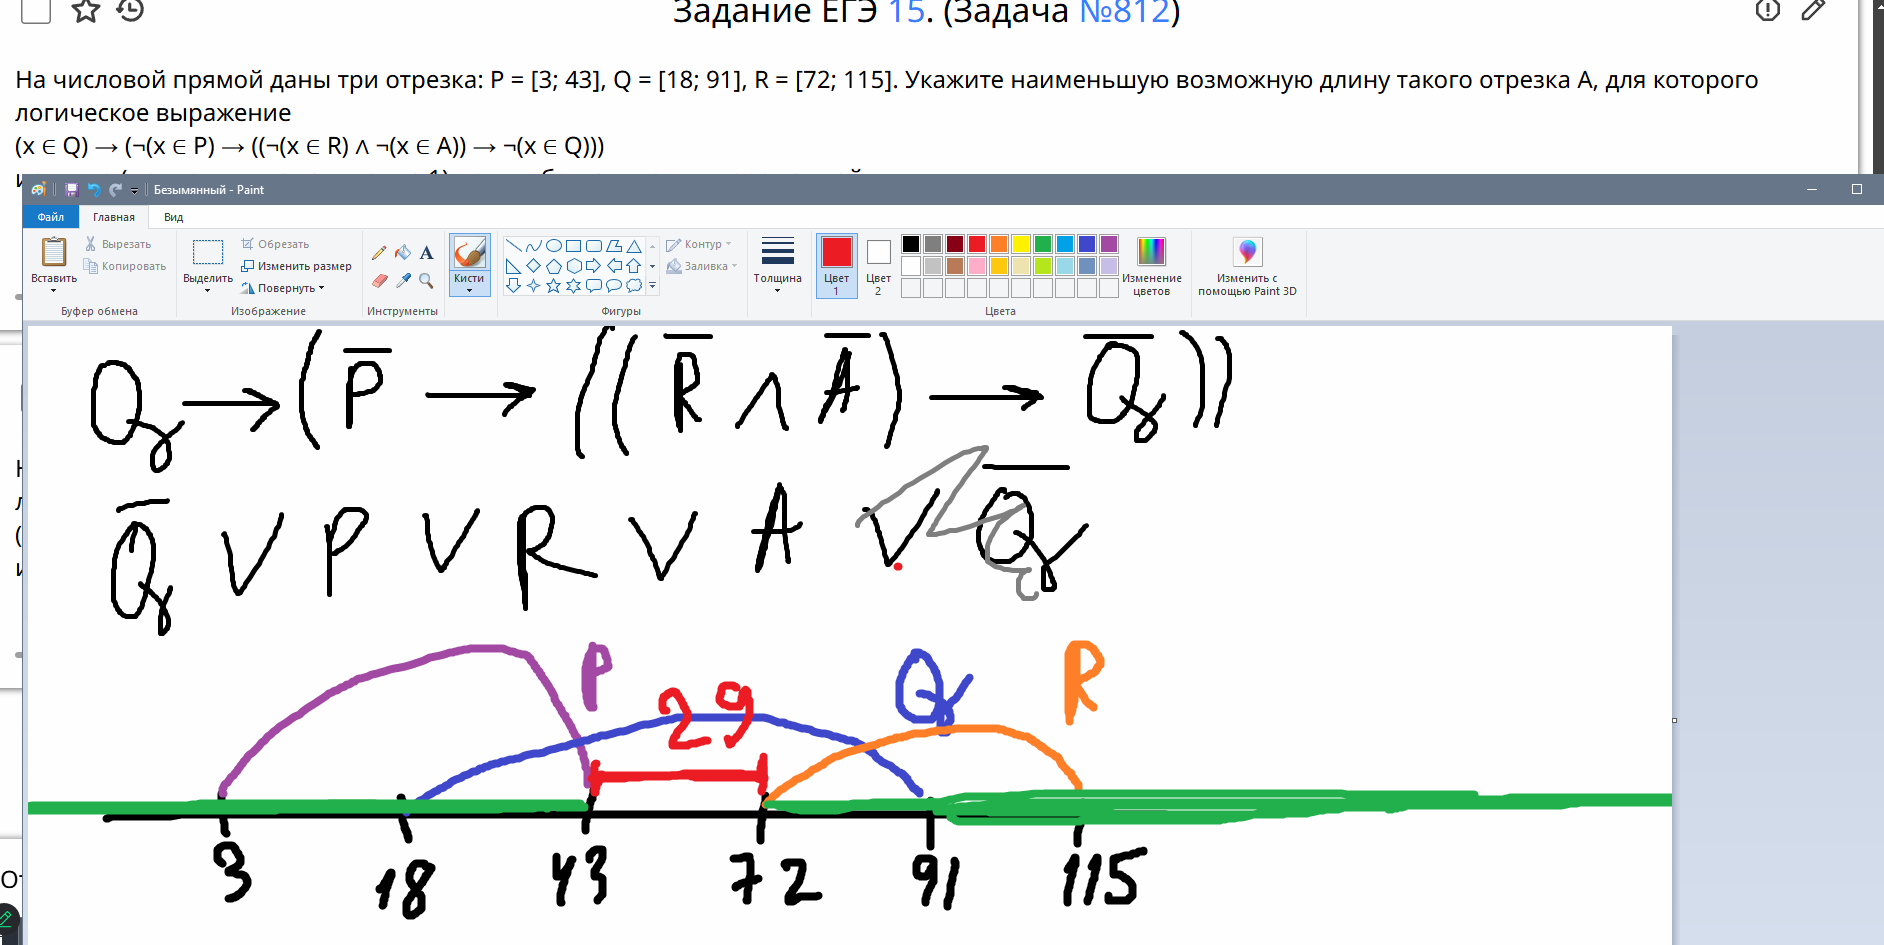 Задание ЕГЭ 15. (Задача №812)
На числовой прямой даны три отрезка: P = [3; 43], Q = [18; 91], R = [72; 115]. Укажите наименьшую возможную длину такого отрезка A, для которого
логическое выражение
(x ∈ Q) → (¬(x ∈ P) → ((¬(x ∈ R) ∧ ¬(x ∈ A)) → ¬(x ∈ Q)))
Безымянный - Paint
Файл Главная Вид
Вставить Вырезать Копировать
Буфер обмена
Выделить Обрезать Изменить размер Повернуть
Изображение
A
Инструменты
Кисти
Контур Заливка
Фигуры
Толщина
Цвет 1 Цвет 2
Изменение цветов
Цвета
Изменить с помощью Paint 3D
Q → (P̅ → ((R̅ ∧ A̅) → Q̅))
Q̅ ∨ P ∨ R ∨ A ∨ Q̅
P Q R
29
3 18 43 72 91 115